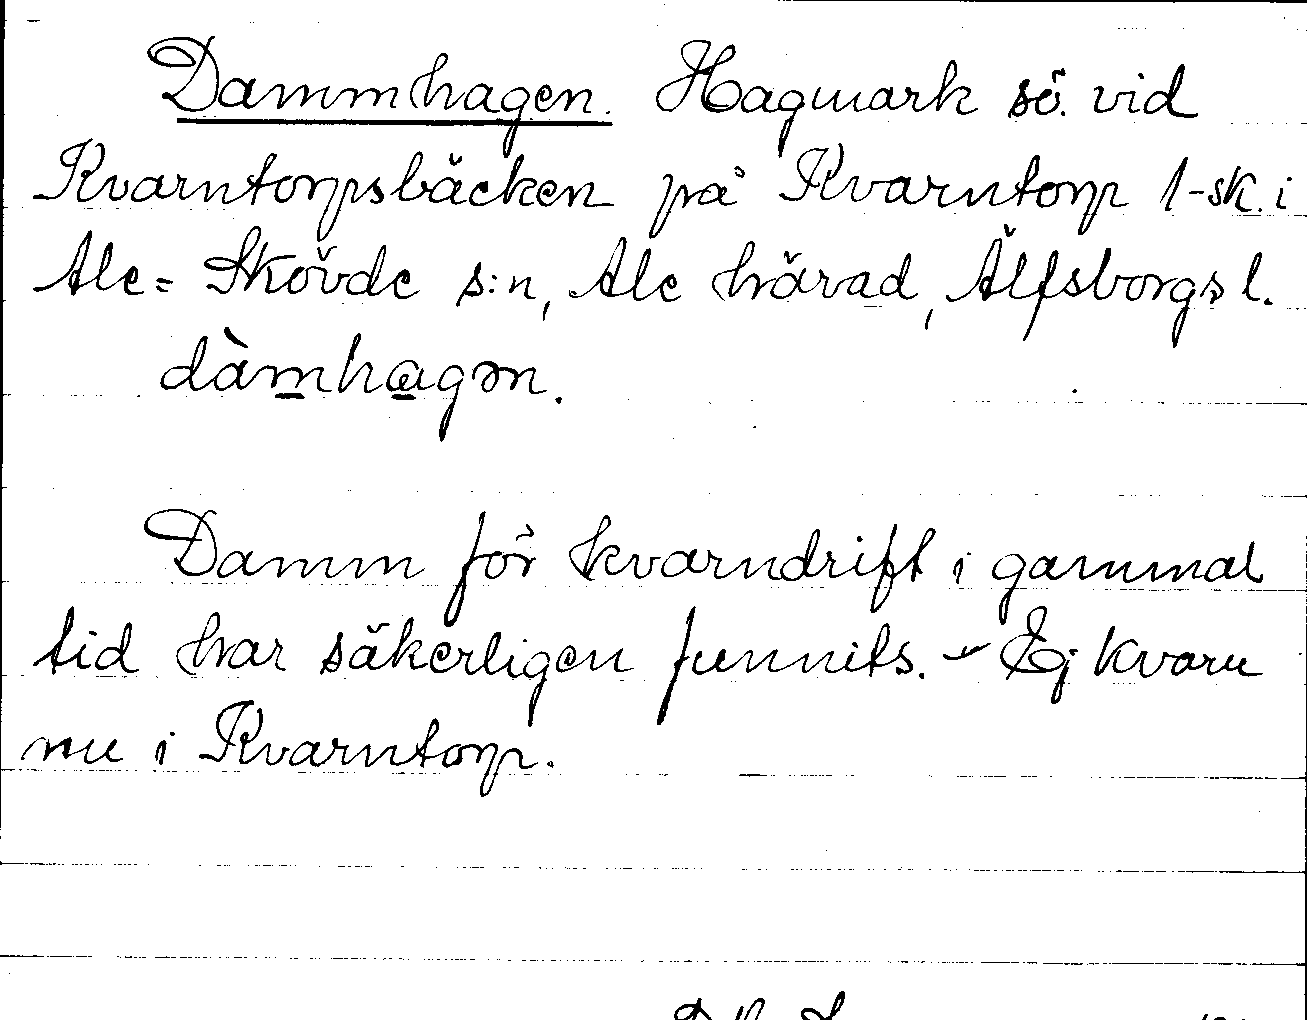 Dammhagen. Hagmark sö. vid
Kvarntorpsbäcken på Kvarntorp 1-sk. i
Ale= Skövde s:n, Ale härad, Älfsborgs l.
dàm̲ha̲gən.
Damm för kvarndrift i gammal
tid har säkerligen funnits. – Ej kvarn
nu i Kvarntorp.